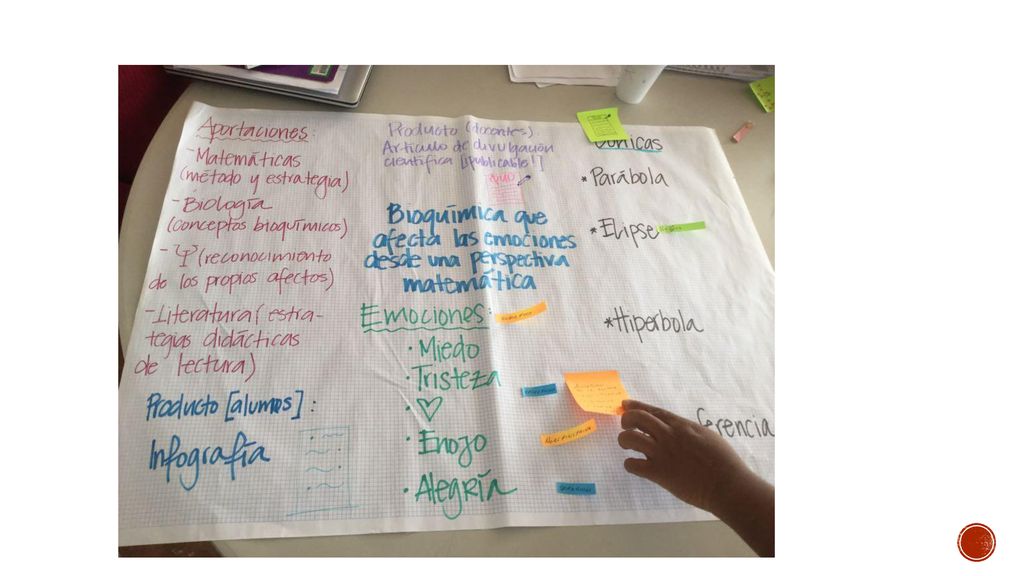 Aportaciones:
- Matemáticas
(método y estrategia)
- Biología
(conceptos bioquímicos)
- Ψ (reconocimiento
de los propios afectos)
- Literatura (estra-
tegias didácticas
de lectura)
Producto [alumnos]:
Infografía
Producto (docentes).
Artículo de divulgación
científica [¡publicable!]
Bioquímica que
afecta las emociones
desde una perspectiva
matemática
Emociones:
· Miedo
· Tristeza
· ♡
· Enojo
· Alegría
Cónicas
* Parábola
* Elipse
* Hiperbola
ferencia